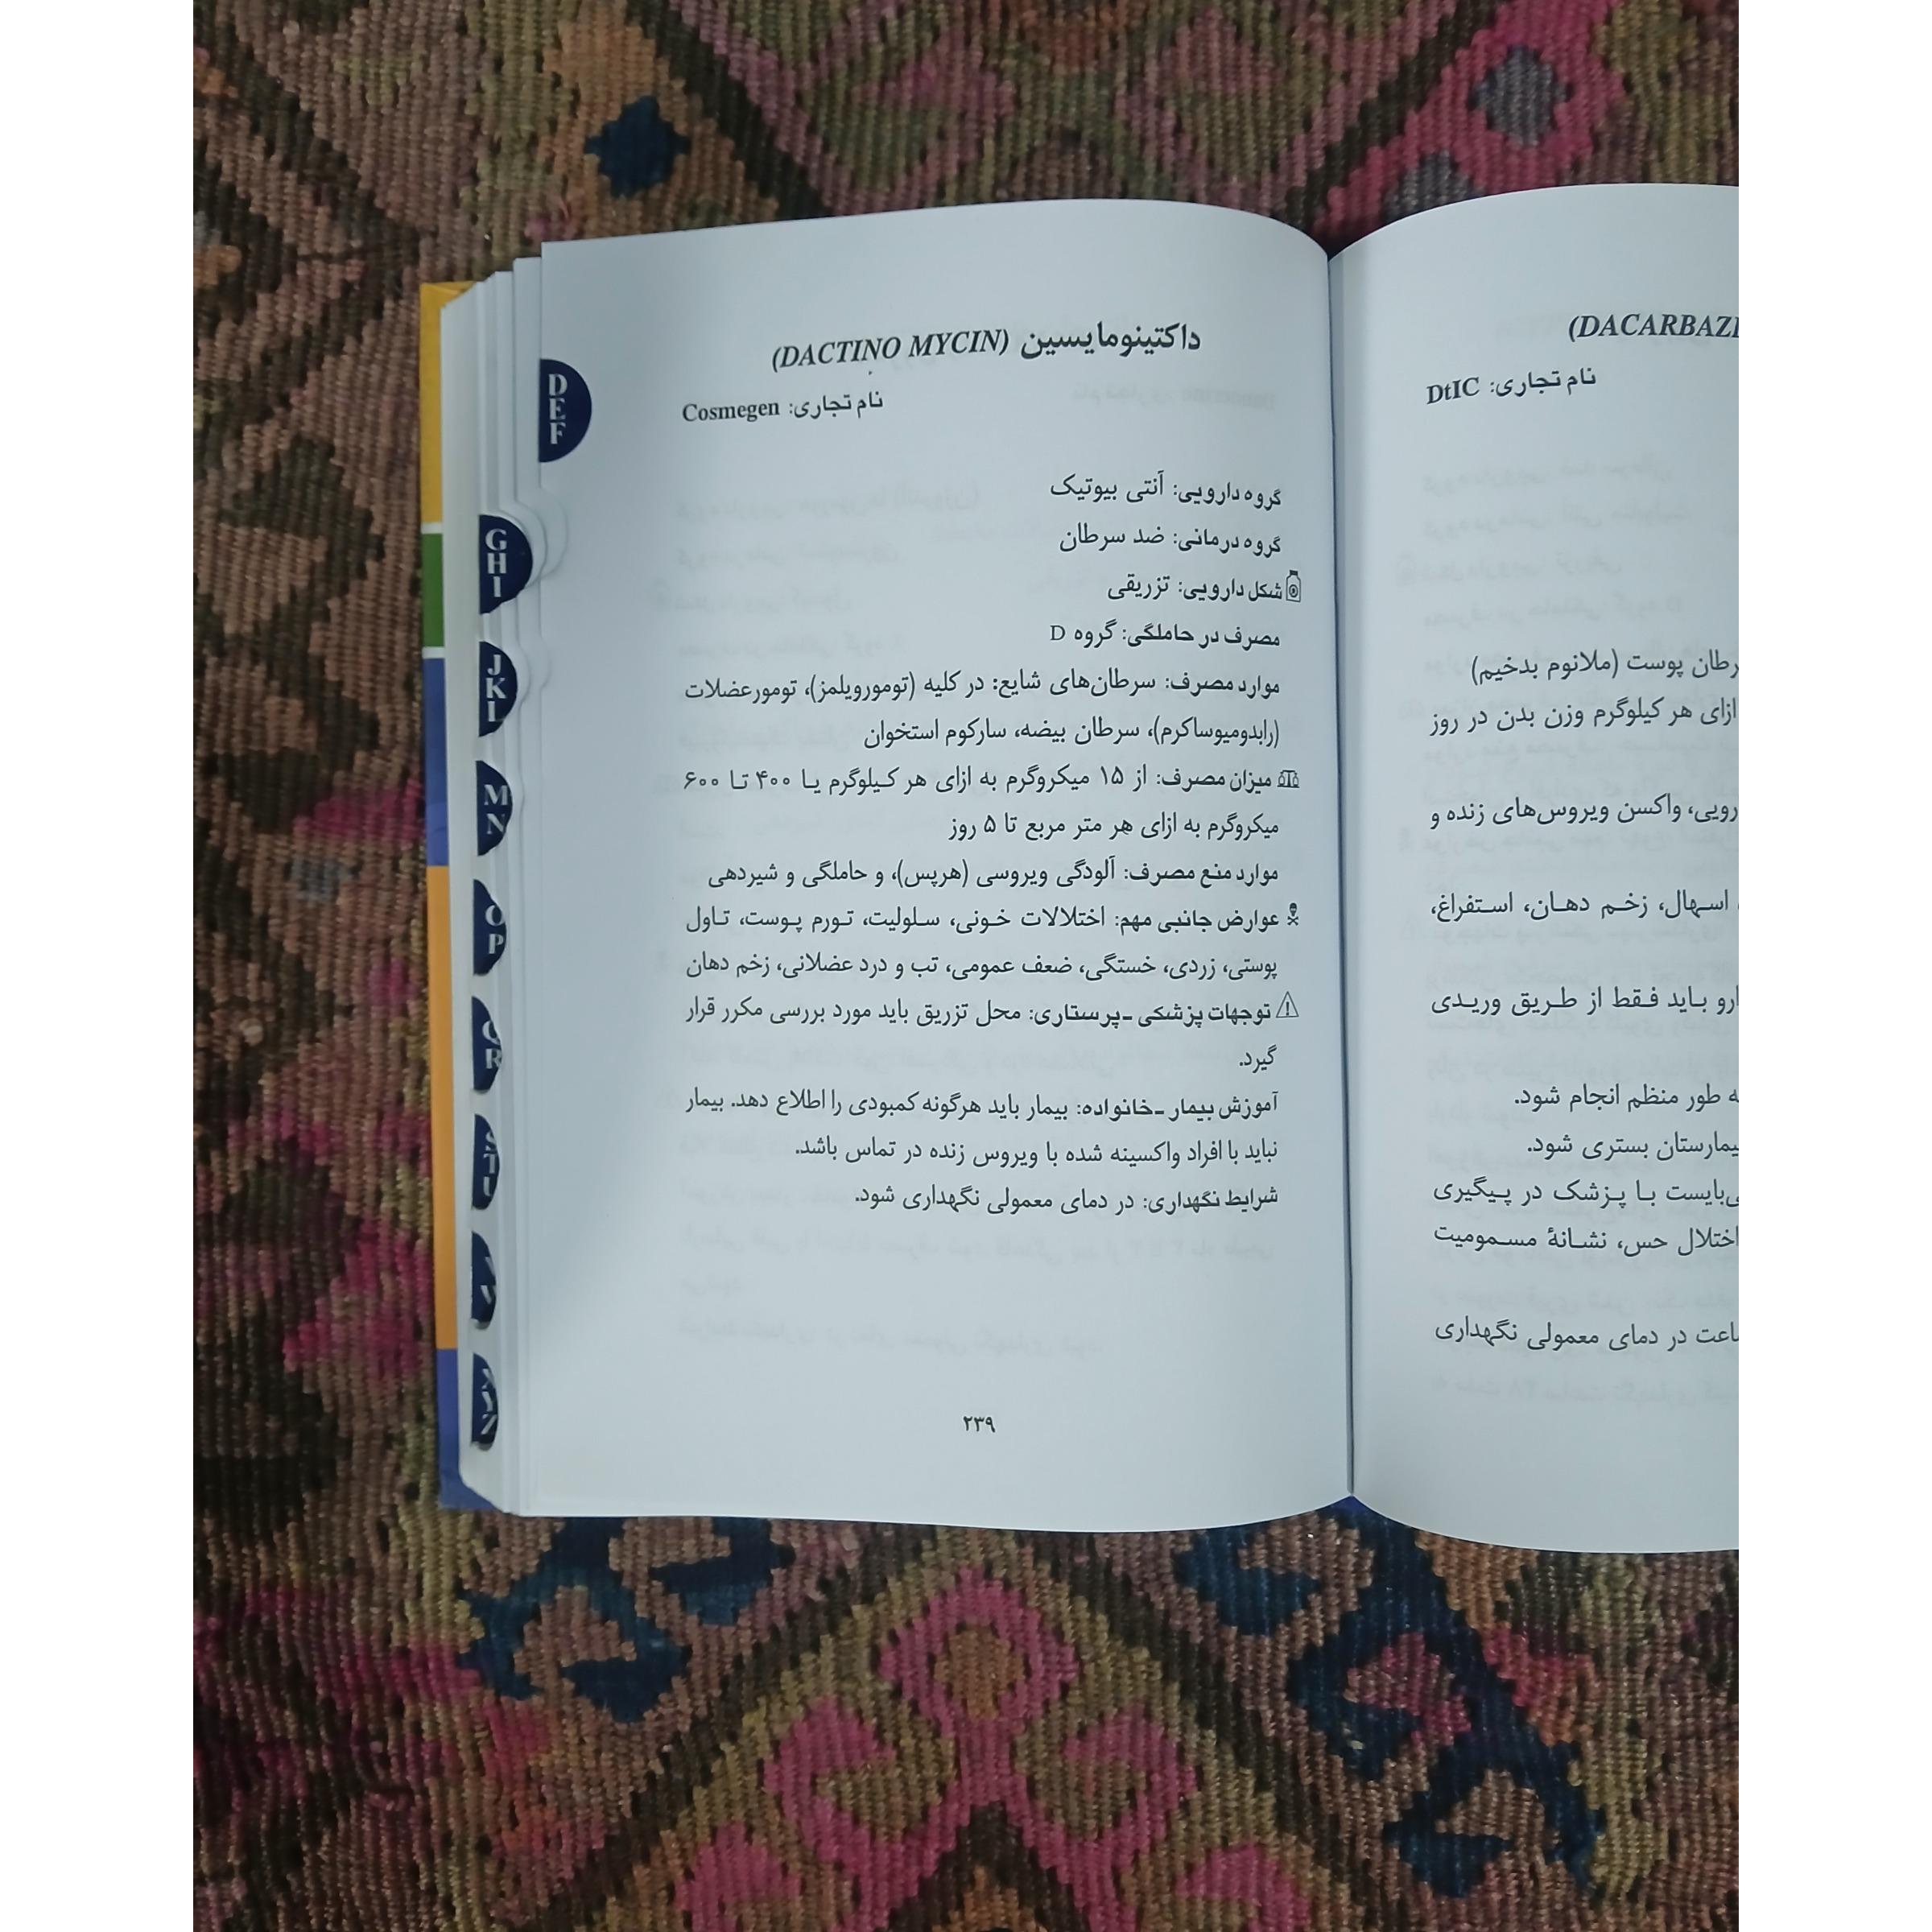 (DACARBAZ
نام تجاری: DtIC
سرطان پوست (ملانوم بدخیم)
ازای هر کیلوگرم وزن بدن در روز
واکسن ویروس‌های زنده و
اسهال، زخم دهان، استفراغ،
باید فقط از طریق وریدی
طور منظم انجام شود.
بستری شود.
با پزشک در پیگیری
اختلال حس، نشانهٔ مسمومیت
در دمای معمولی نگهداری
داکتینومایسین (DACTINO MYCIN)
نام تجاری: Cosmegen
گروه دارویی: آنتی بیوتیک
گروه درمانی: ضد سرطان
شکل دارویی: تزریقی
مصرف در حاملگی: گروه D
موارد مصرف: سرطان‌های شایع: در کلیه (تومورویلمز)، تومورعضلات
(رابدومیوساکرم)، سرطان بیضه، سارکوم استخوان
میزان مصرف: از ۱۵ میکروگرم به ازای هر کیلوگرم یا ۴۰۰ تا ۶۰۰
میکروگرم به ازای هر متر مربع تا ۵ روز
موارد منع مصرف: آلودگی ویروسی (هرپس)، و حاملگی و شیردهی
عوارض جانبی مهم: اختلالات خونی، سلولیت، تورم پوست، تاول
پوستی، زردی، خستگی، ضعف عمومی، تب و درد عضلانی، زخم دهان
توجهات پزشکی -پرستاری: محل تزریق باید مورد بررسی مکرر قرار
گیرد.
آموزش بیمار -خانواده: بیمار باید هرگونه کمبودی را اطلاع دهد. بیمار
نباید با افراد واکسینه شده با ویروس زنده در تماس باشد.
شرایط نگهداری: در دمای معمولی نگهداری شود.
۲۳۹
D
E
F
G
H
I
J
K
L
M
N
O
P
Q
R
S
T
U
V
W
X
Y
Z